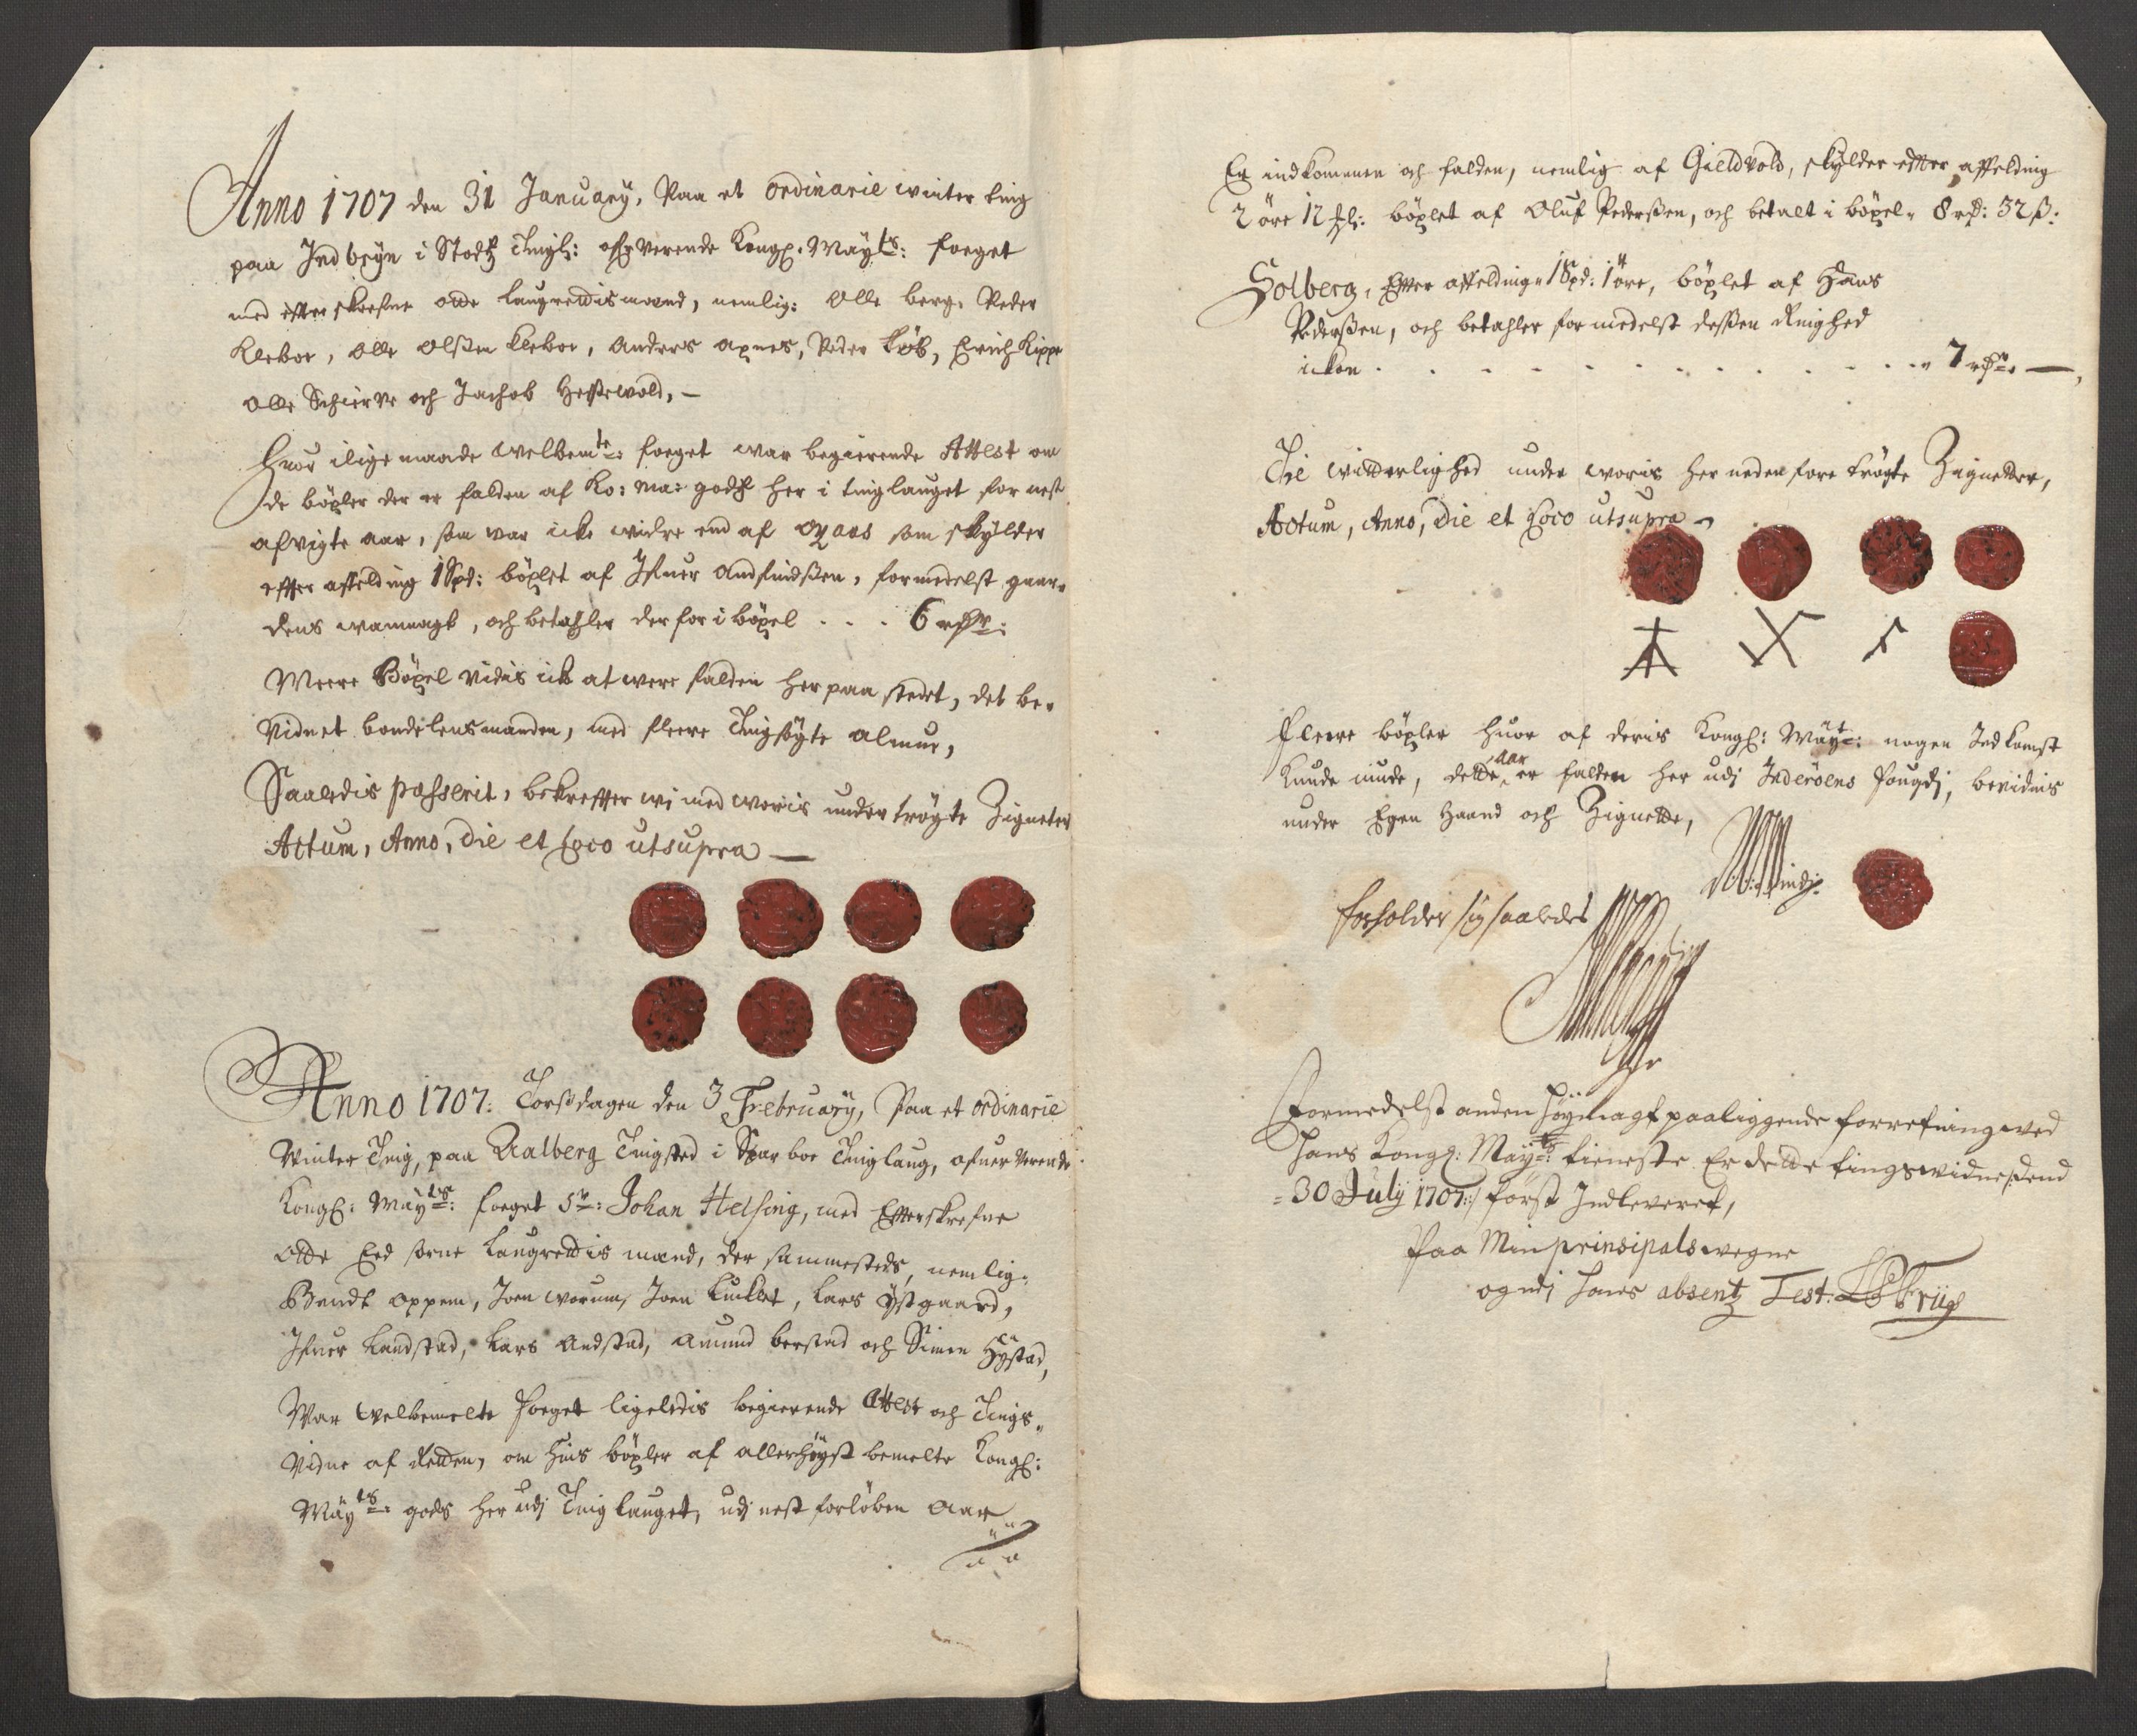 Anno 1707 den 31 January, Paa et ordinarie winter ting
paa Indbryn i Stodz Tingl: offuerverende Kongl. Mayts: foeget
med effterskrefne otte laugrettismænd, nemlig: Olle berg, Peder
Klebor, Olle Olssen Klebor, Anders Axnes, Peder Kirchnes
Olle Schierve och Jachob Hestewold,
Huor i lige maade welbemte: foeget war begierende Attest om
de böxler der er falden af Ko: Ma: godtz her i tinglauget for nest
afvigte aar, som war icke widre end af som skylder
effter affelding 1 Spd: böxlet af Ifuer Andfindssen, formedelst gaar-
dens wanmagt, och betahler derfor i böxel . . . 6 rdr:
Meere Böxel vidis ick at were falden her paa stedet, det be-
vidnet bondelensmanden, med fleere Tingsögte almue,
Saaledis passerit, bekreffter wi med woris under trögte Zigneter
Actum, Anno, die et Loco utsupra
Anno 1707: Torssdagen den 3 February, Paa et ordinarie
Winter Ting, paa Aalberg Tingsted i Sparboe Tinglaug, ofuerverende
Kongl: Mayts: foeget Sr: Johan Helsing, med Effterskrefne
otte Eed sorne Laugrettis mænd, der sammesteds, nemlig:
Bendt Oppem, Joen worum, Joen Lunket, Lars Ÿstgaard,
Ifuer Landstad, Lars Andstad, Amund berstad och Simen Hÿstad,
War welbemelte foeget ligeledis begierende Attest och Tings-
vidne af Retten, om huis böxler af allerhöyst bemelte Kongl:
Mayts: gods her udj Tinglauget, udj nest forlöben Aar
Er indkommen och falden, nemlig af Gieldvold, skylder effter affelding
2 öre 12 böxlet af Oluf Pederssen, och betalt i böxel 8 rd: 32 ß:
Solberg, Effter affelding 1 Spd: 1 öre, böxlet af Hans
Pederssen, och betahler formedelst dessen Ringhed
ickon . . . . . . . . . . . . 7 rdr
Til witterlighed under woris her nedenfore trögte Zignetter,
Actum, Anno, Die et Loco utsupra
Fleere böxler huor af deris Kongl: Mayt: nogen Indkomst
kunde niude, dette aar er falden her udj Inderöens fougdj, bevidnis
under Egen Haand och Zignette,
forholder sig saaledes
Formedelst anden höymagtpaaliggende forretning ved
Hans Kongl: Mayts: tieneste Er dette tingswidne /:dend
30 July 1707:/ först Indleveret,
Paa Min prinsipals wegne
og udj hans absentz Test: